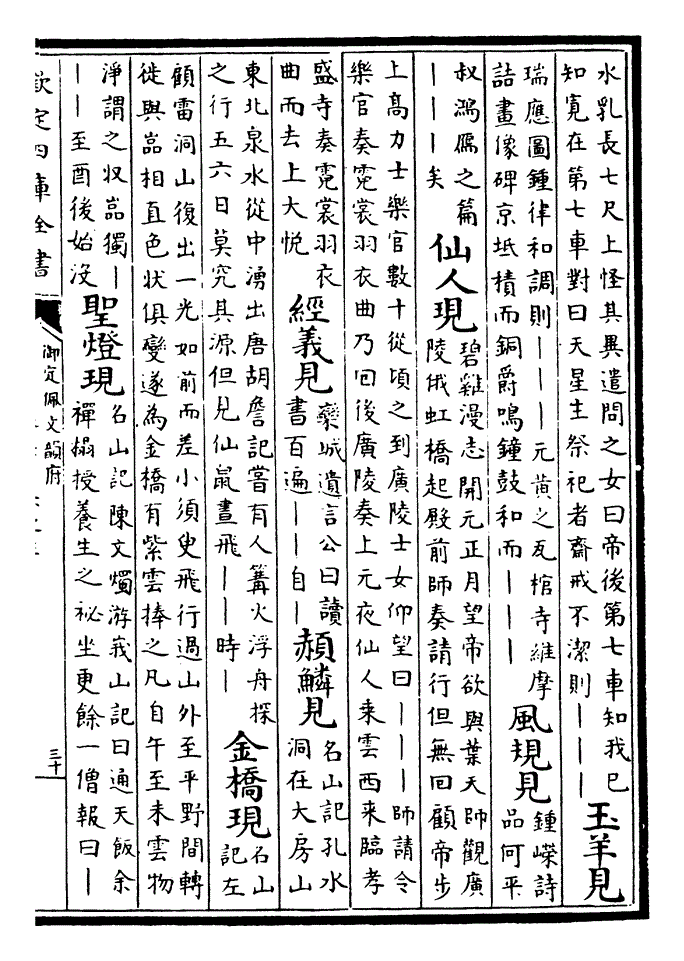 水乳長七尺上怪其異遣問之女曰帝後第七車知我已
知寛在第七車對曰天星主祭祀者齋戒不潔則｜｜｜
玉羊見
瑞應圖鍾律和調則｜｜｜元黄之瓦棺寺維摩
詰畫像碑京坻積而銅爵鳴鐘鼓和而｜｜｜
風規見
鍾嶸詩
品何平
叔鴻鴈之篇
｜｜｜矣
仙人現
碧雞漫志開元正月望帝欲與葉天師觀廣
陵俄虹橋起殿前師奏請行但無回顧帝步
上高力士樂官數十從頃之到廣陵士女仰望曰｜｜｜師請令
樂官奏霓裳羽衣曲乃回後廣陵奏上元夜仙人来雲西来臨孝
盛寺奏霓裳羽衣
曲而去上大悦
經義見
欒城遺言公曰讀
書百遍｜｜自｜
頳鱗見
名山記孔水
洞在大房山
東北泉水從中湧出唐胡詹記嘗有人篝火浮舟探
之行五六日莫究其源但見仙鼠晝飛｜｜時｜
金橋現
名山
記左
顧雷洞山復出一光如前而差小須臾飛行過山外至平野間轉
徙與嵓相直色状俱變遂為金橋有紫雲捧之凡自午至未雲物
淨謂之収嵓獨｜
｜｜至酉後始沒
聖燈現
名山記陳文燭游峩山記曰通天飯余
禪榻授養生之祕坐更餘一僧報曰｜
欽定四庫全書
御定佩文韻府
三十